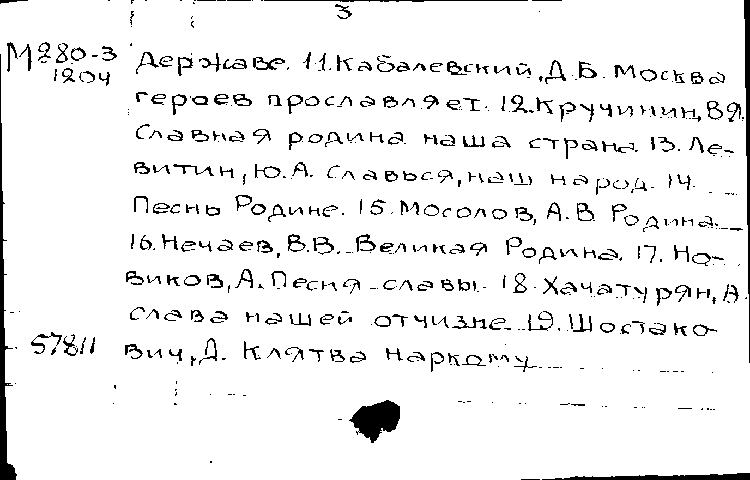 3
М280-3 Державе. 11. Кабалевский, Д.Б. Москва
1204
героев прославляет. 12. Кручинин, В.Я.
Славная родина наша страна. 13. Ле-
витин, Ю.А. Славься, наш народ. 14.
Песнь Родине. 15. Мосолов, А.В. Родина.
16. Нечаев, В.В. Великая Родина. 17. Но-
виков, А. Песня славы. 18. Хачатурян, А.
слава нашей отчизне. 19. Шостако-
57811 вич, Д. Клятва наркому